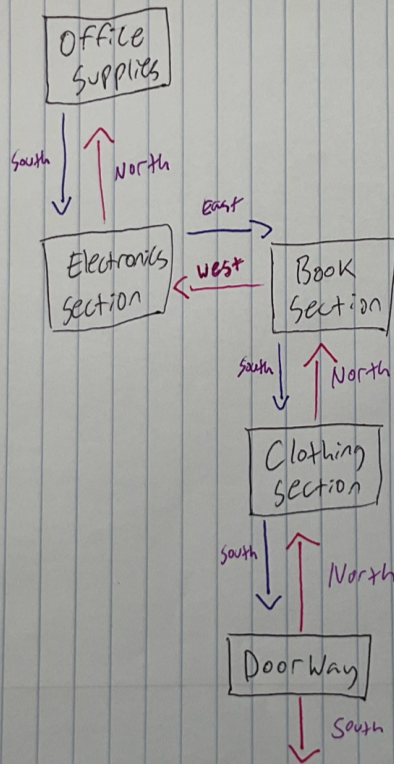 Office
Supplies
South
North
East
Electronics
section
West
Book
Section
South
North
Clothing
section
South
North
DoorWay
South